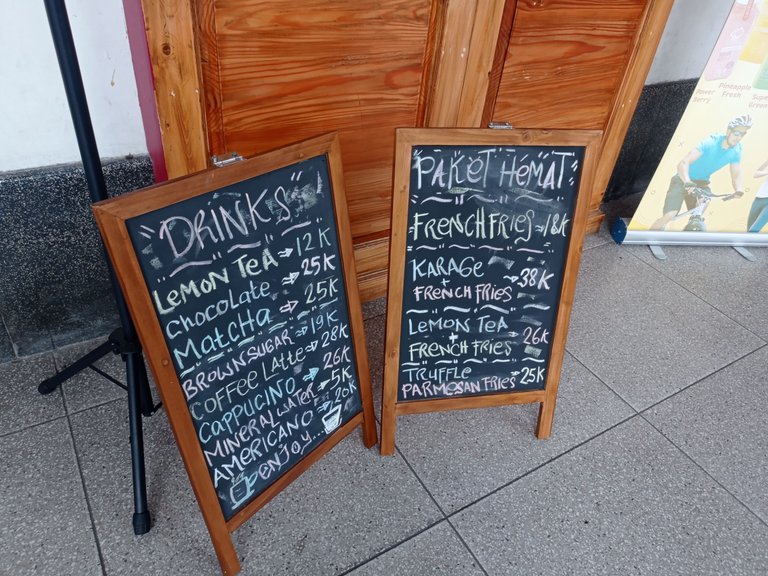 "DRINKS"
LEMON TEA ⇒ 12K
CHOCOLATE ⇒ 25K
MATCHA ⇒ 25K
BROWN SUGAR ⇒ 19K
COFFEE LATTE ⇒ 28K
CAPPUCINO ⇒ 26K
MINERAL WATER ⇒ 5K
AMERICANO ⇒ 20K
ENJOY...
"PAKET HEMAT"
FRENCH FRIES ⇒ 18K
KARAGE
+ ⇒ 38K
FRENCH FRIES
LEMON TEA
+ ⇒ 26K
FRENCH FRIES
TRUFFLE
PARMESAN FRIES ⇒ 25K
Power Berry
Pineapple Fresh
Super Green